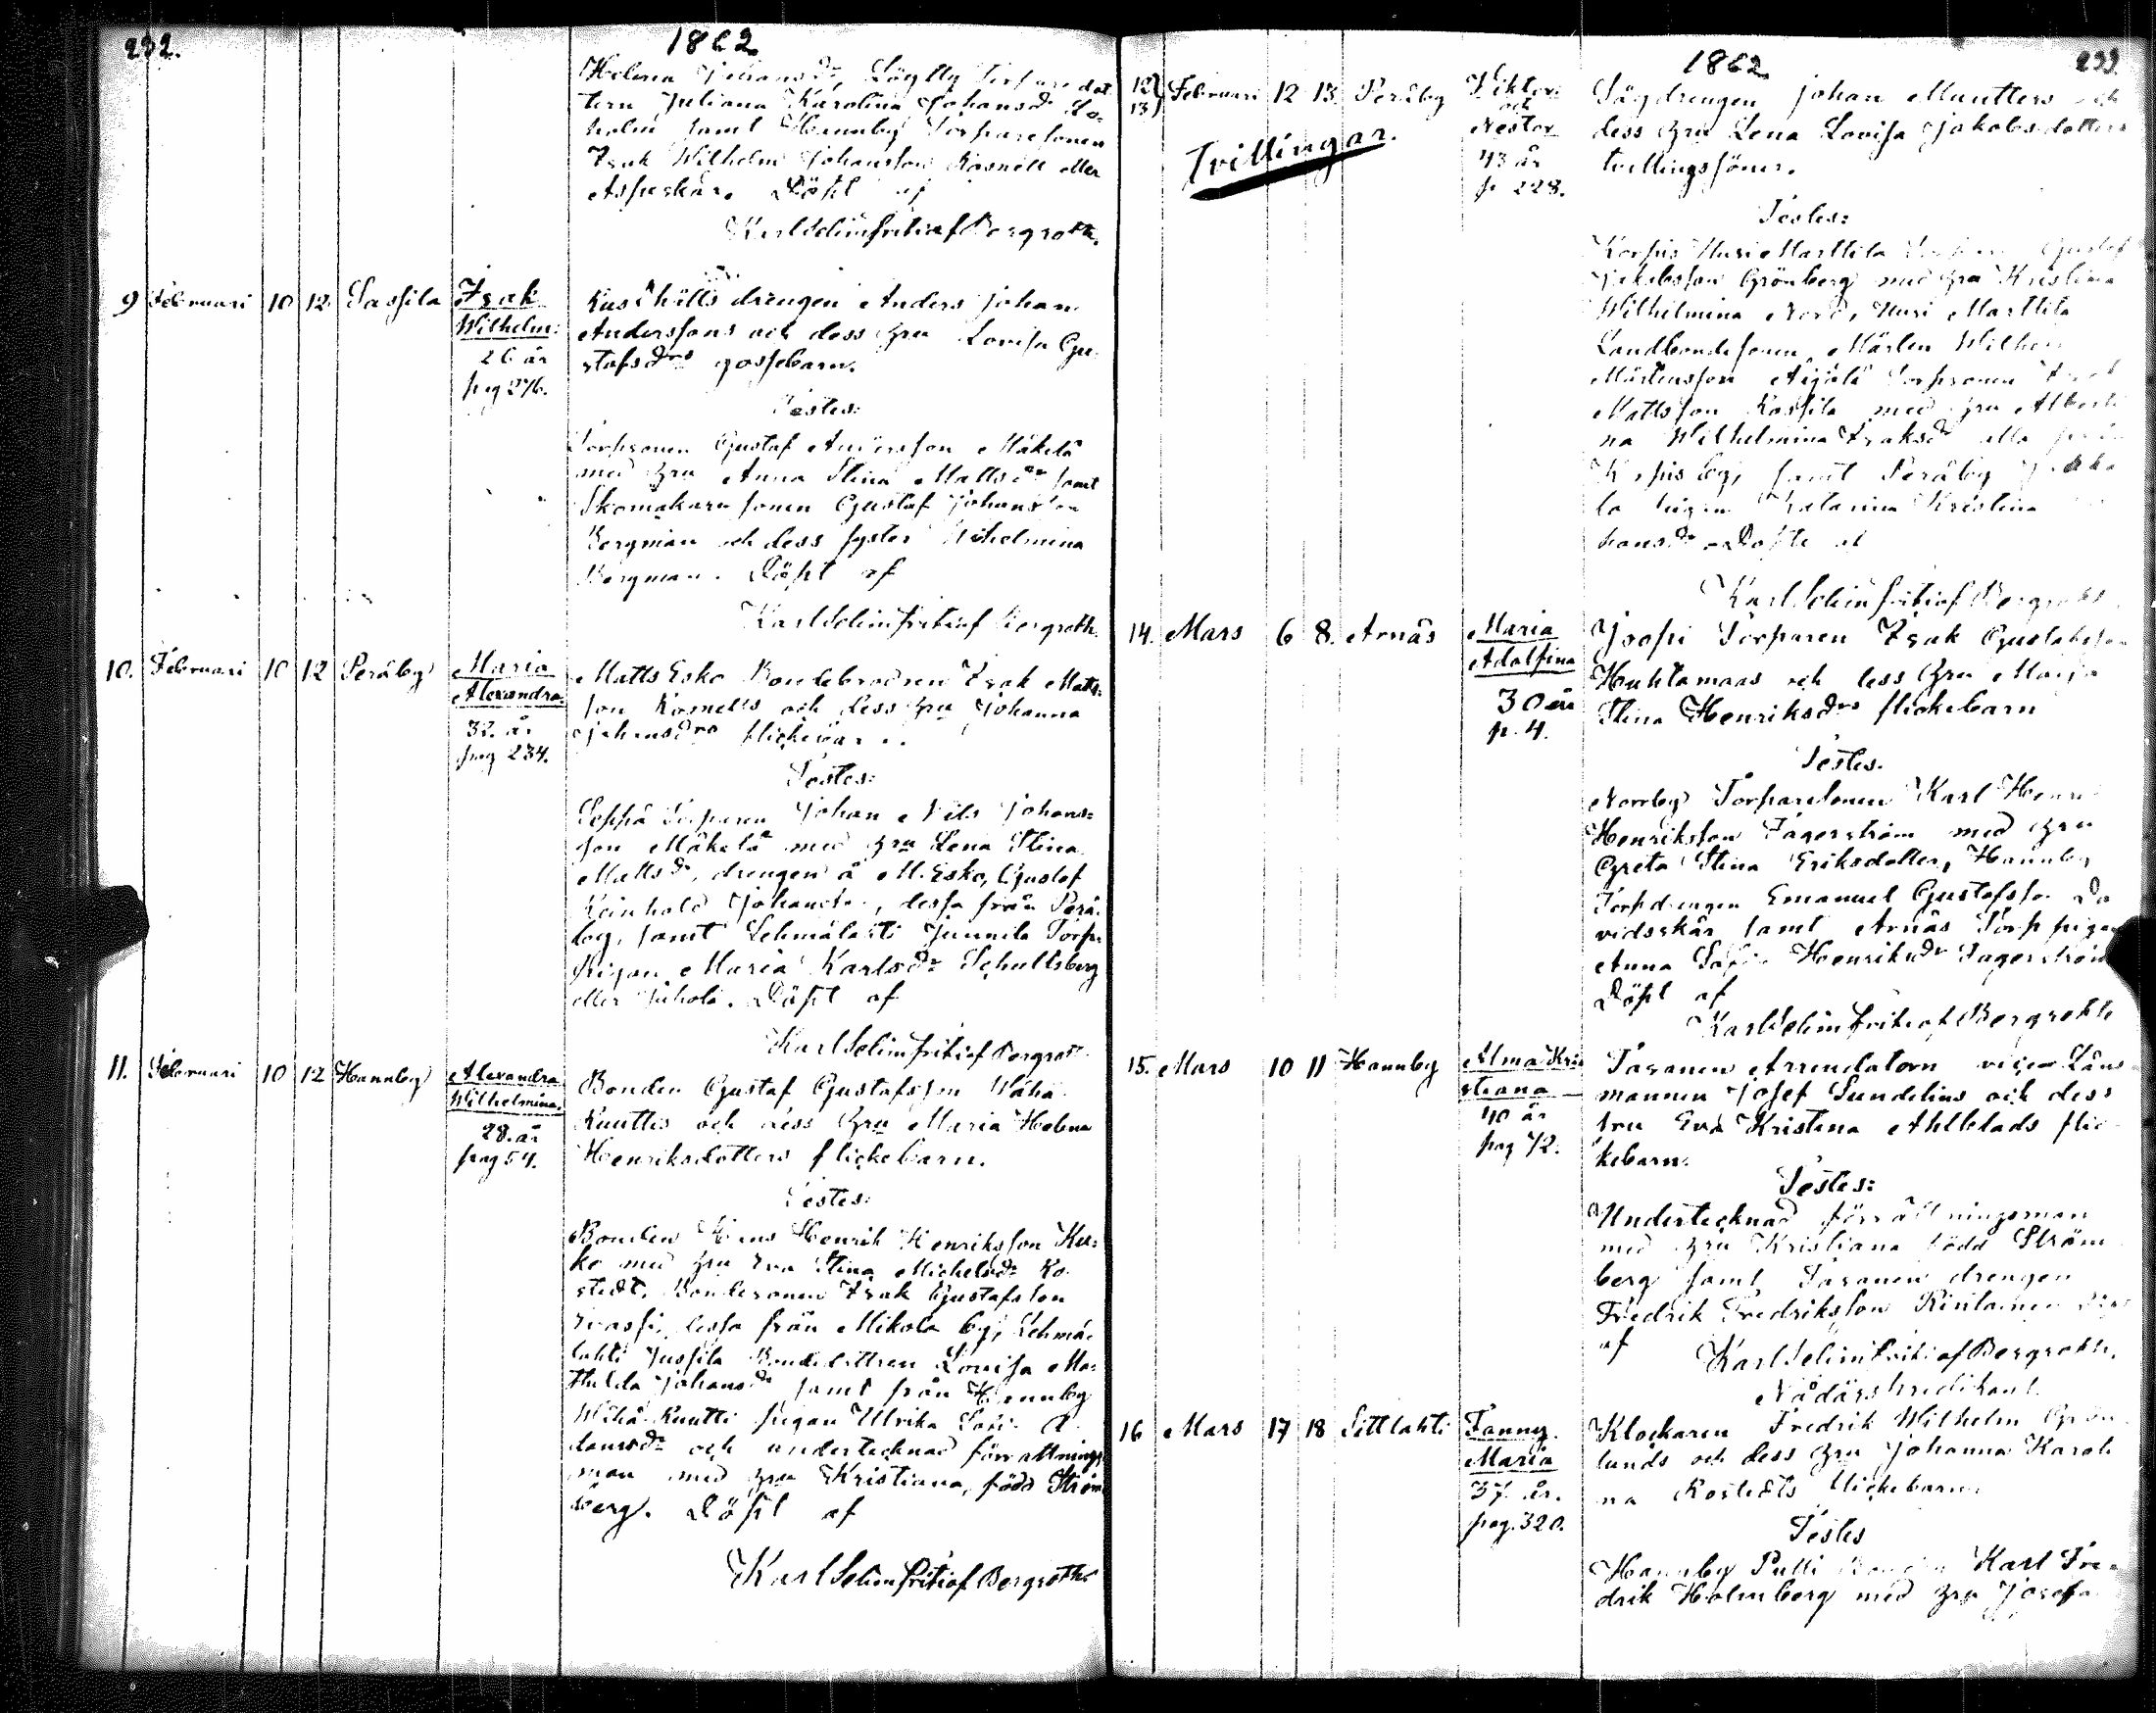 232.
1862
Helena Johansdr, Löytty Torparedot
tern Juliana Karolina Johansdr
holm samt Hannby Torparesonen
Isak Wilhelm Johansson Rosnell eller
Aspeskär. Döpt af
Karl Selim Fritiof Bergroth.
9 Februari 10 12 Sassila
Isak
Wilhelm:
26 år
pag 276.
drengen Anders Johan
Anderssons och dess hru Lovisa Gu
stafsdrs gossebarn.
Testes:
Torpsonen Gustaf Andersson Mäkelä
med hru Anna Stina Mattsdr samt
Skomakare sonen Gustaf Johansson
Bergman och dess syster Wilhelmina
Bergman. Döpt af
Karl Selim Fritiof Bergroth.
10. Februari 10 12 Peråby
Maria
Alexandra
32. år
pag 234.
Matts Esko Bondebrodren Isak Matts
son Rosnells och dess hru Johanna
Johansdrs flickebarn.
Testes:
Seppä Torparen Johan Nils Johans=
son Mäkelä med hru Lena Stina
Mattsdr, drengen å M. Esko, Gustaf
Reinhold Johansson, dessa från Perå
by, samt Lehmälahti Junnila Torp
pigan Maria Karlsdr Schultsberg
eller Juhola. Döpt af
Karl Selim Fritiof Bergroth
11. Februari 10 12 Hannby
Alexandra
Wilhelmina.
28. år
pag 54.
Bonden Gustaf Gustafsson Wähä
Kuuttis och dess hru Maria Helena
Henriksdotters flickebarn.
Testes:
Bonden Henrik Henriksson
ko med hru Eva Stina Michelsdr Ro
stedt, Bondesonen Isak Gustafsson
dessa från Mikola by, Lehmä
lahti Jussila Bondedottren Lovisa Ma=
thilda Johansdr samt från Hannby
Wähä Kuutti pigan Ulrika Sofia A
damsdr och undertecknad förrättnings
man med hru Kristiana, född Ström
berg. Döpt af
Karl Selim Fritiof Bergroth
1862 233
12) Februari 12 13 Peråby
13)
Tvillingar.
Viktor
och
Nestor
43 år
p 228.
Sågdrengen Johan Muntters och
dess hru Lena Lovisa Jakobsdotters
tvillingssöner.
Testes:
Korpis Uusi Marttila Gustaf
Jakobsson Grönberg med hru Kristina
Wilhelmina Nord, Uusi Marttila
Landbondesonen Mårten Wilhelm
Mårtensson Äijälä Torpsonen Isak
Mattsson Rassila med hru Alberti
na Wilhelmina Isaksdr alla från
Korpis by, samt Peråby
la pigan Katarina Kristina
hansdr Döpte af
Karl Selim Fritiof Bergroth
14. Mars 6 8. Arnäs
Maria
Adolfina
30 år
p. 4.
Joopi Torparen Isak Gustafsson
Huhtamaas och dess hru Maija
Stina Henriksdrs flickebarn
Testes.
Norrby Torparesonen Karl Henrik
Henriksson Fagerström med hru
Greta Stina Eriksdotter, Hannby
Torpdrengen Emanuel Gustafsson Da
vidsskär samt Arnäs Torppigan
Anna Sofia Henriksdr Fagerström
Döpt af
Karl Selim Fritiof Bergroth
15. Mars 10 11 Hannby
Alma Kri
stiana
40 år
pag 72.
Pasanen Arrendatorn vice Läns
mannen Josef Sundelius och dess
fru Eva Kristina Ahlblads flic
kebarn.
Testes:
Undertecknad förrättningsman
med hru Kristiana född Ström
berg samt Pasanen drengen
Fredrik Fredriksson Rintanen Döpt
af Karl Selim Fritiof Bergroth.
Nådårspredikant.
16 Mars 17 18 Sittlahti
Fanny
Maria
37. år.
pag. 320.
Klockaren Fredrik Wilhelm Grön
lunds och dess hru Johanna Karoli
na Rostedts flickebarn.
Testes
Hannby Putti Bonden Karl Fre=
drik Holmberg med hru Josefa